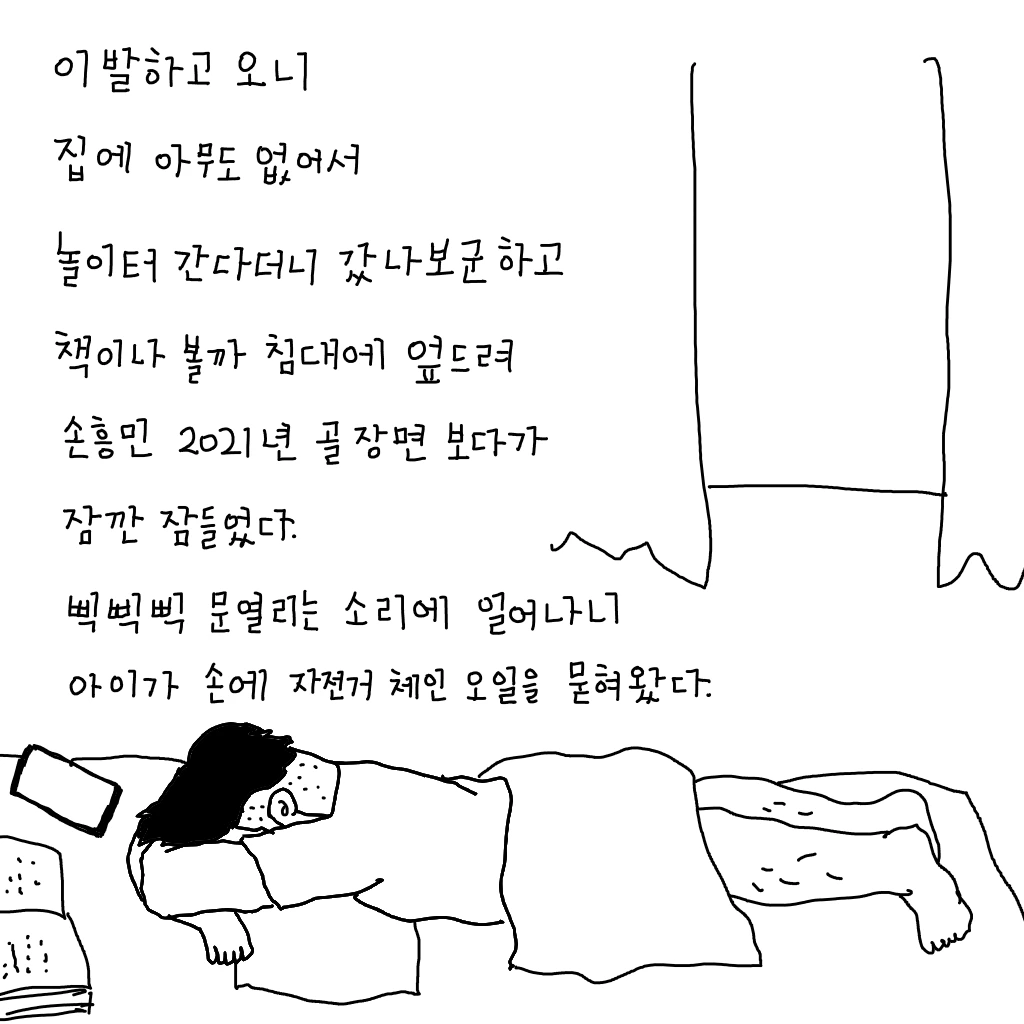 이발하고 오니
집에 아무도 없어서
놀이터 간다더니 갔나보군하고
책이나 볼까 침대에 엎드려
손흥민 2021년 골 장면 보다가
잠깐 잠들었다.
삑삑삑 문열리는 소리에 일어나니
아이가 손에 자전거 체인 오일을 묻혀왔다.